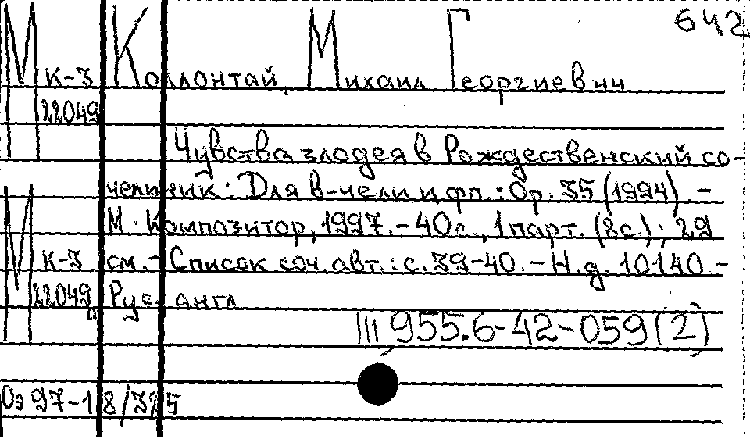 642
М К-3 Коллонтай, Михаил Георгиевич
22049
Чувства злодея в Рождественский со-
чельник: Для в-чели и фп.: Ор. 35 (1994). -
М. Композитор, 1997. - 40 с., 1 парт. (8 с.); 29
М К-3 см. - Список соч. авт.: с. 39-40. - Н.д. 10140 -
22049 Рус-англ
III 955.6-42-059(2)
Оэ 97-18/325